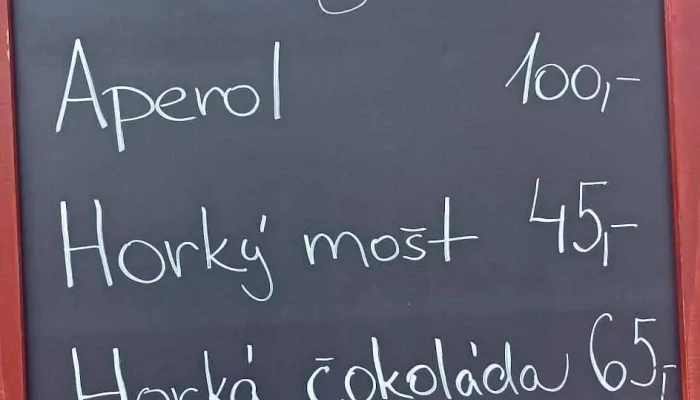 Aperol 100,-
Horký mošt 45,-
Horká čokoláda 65,-